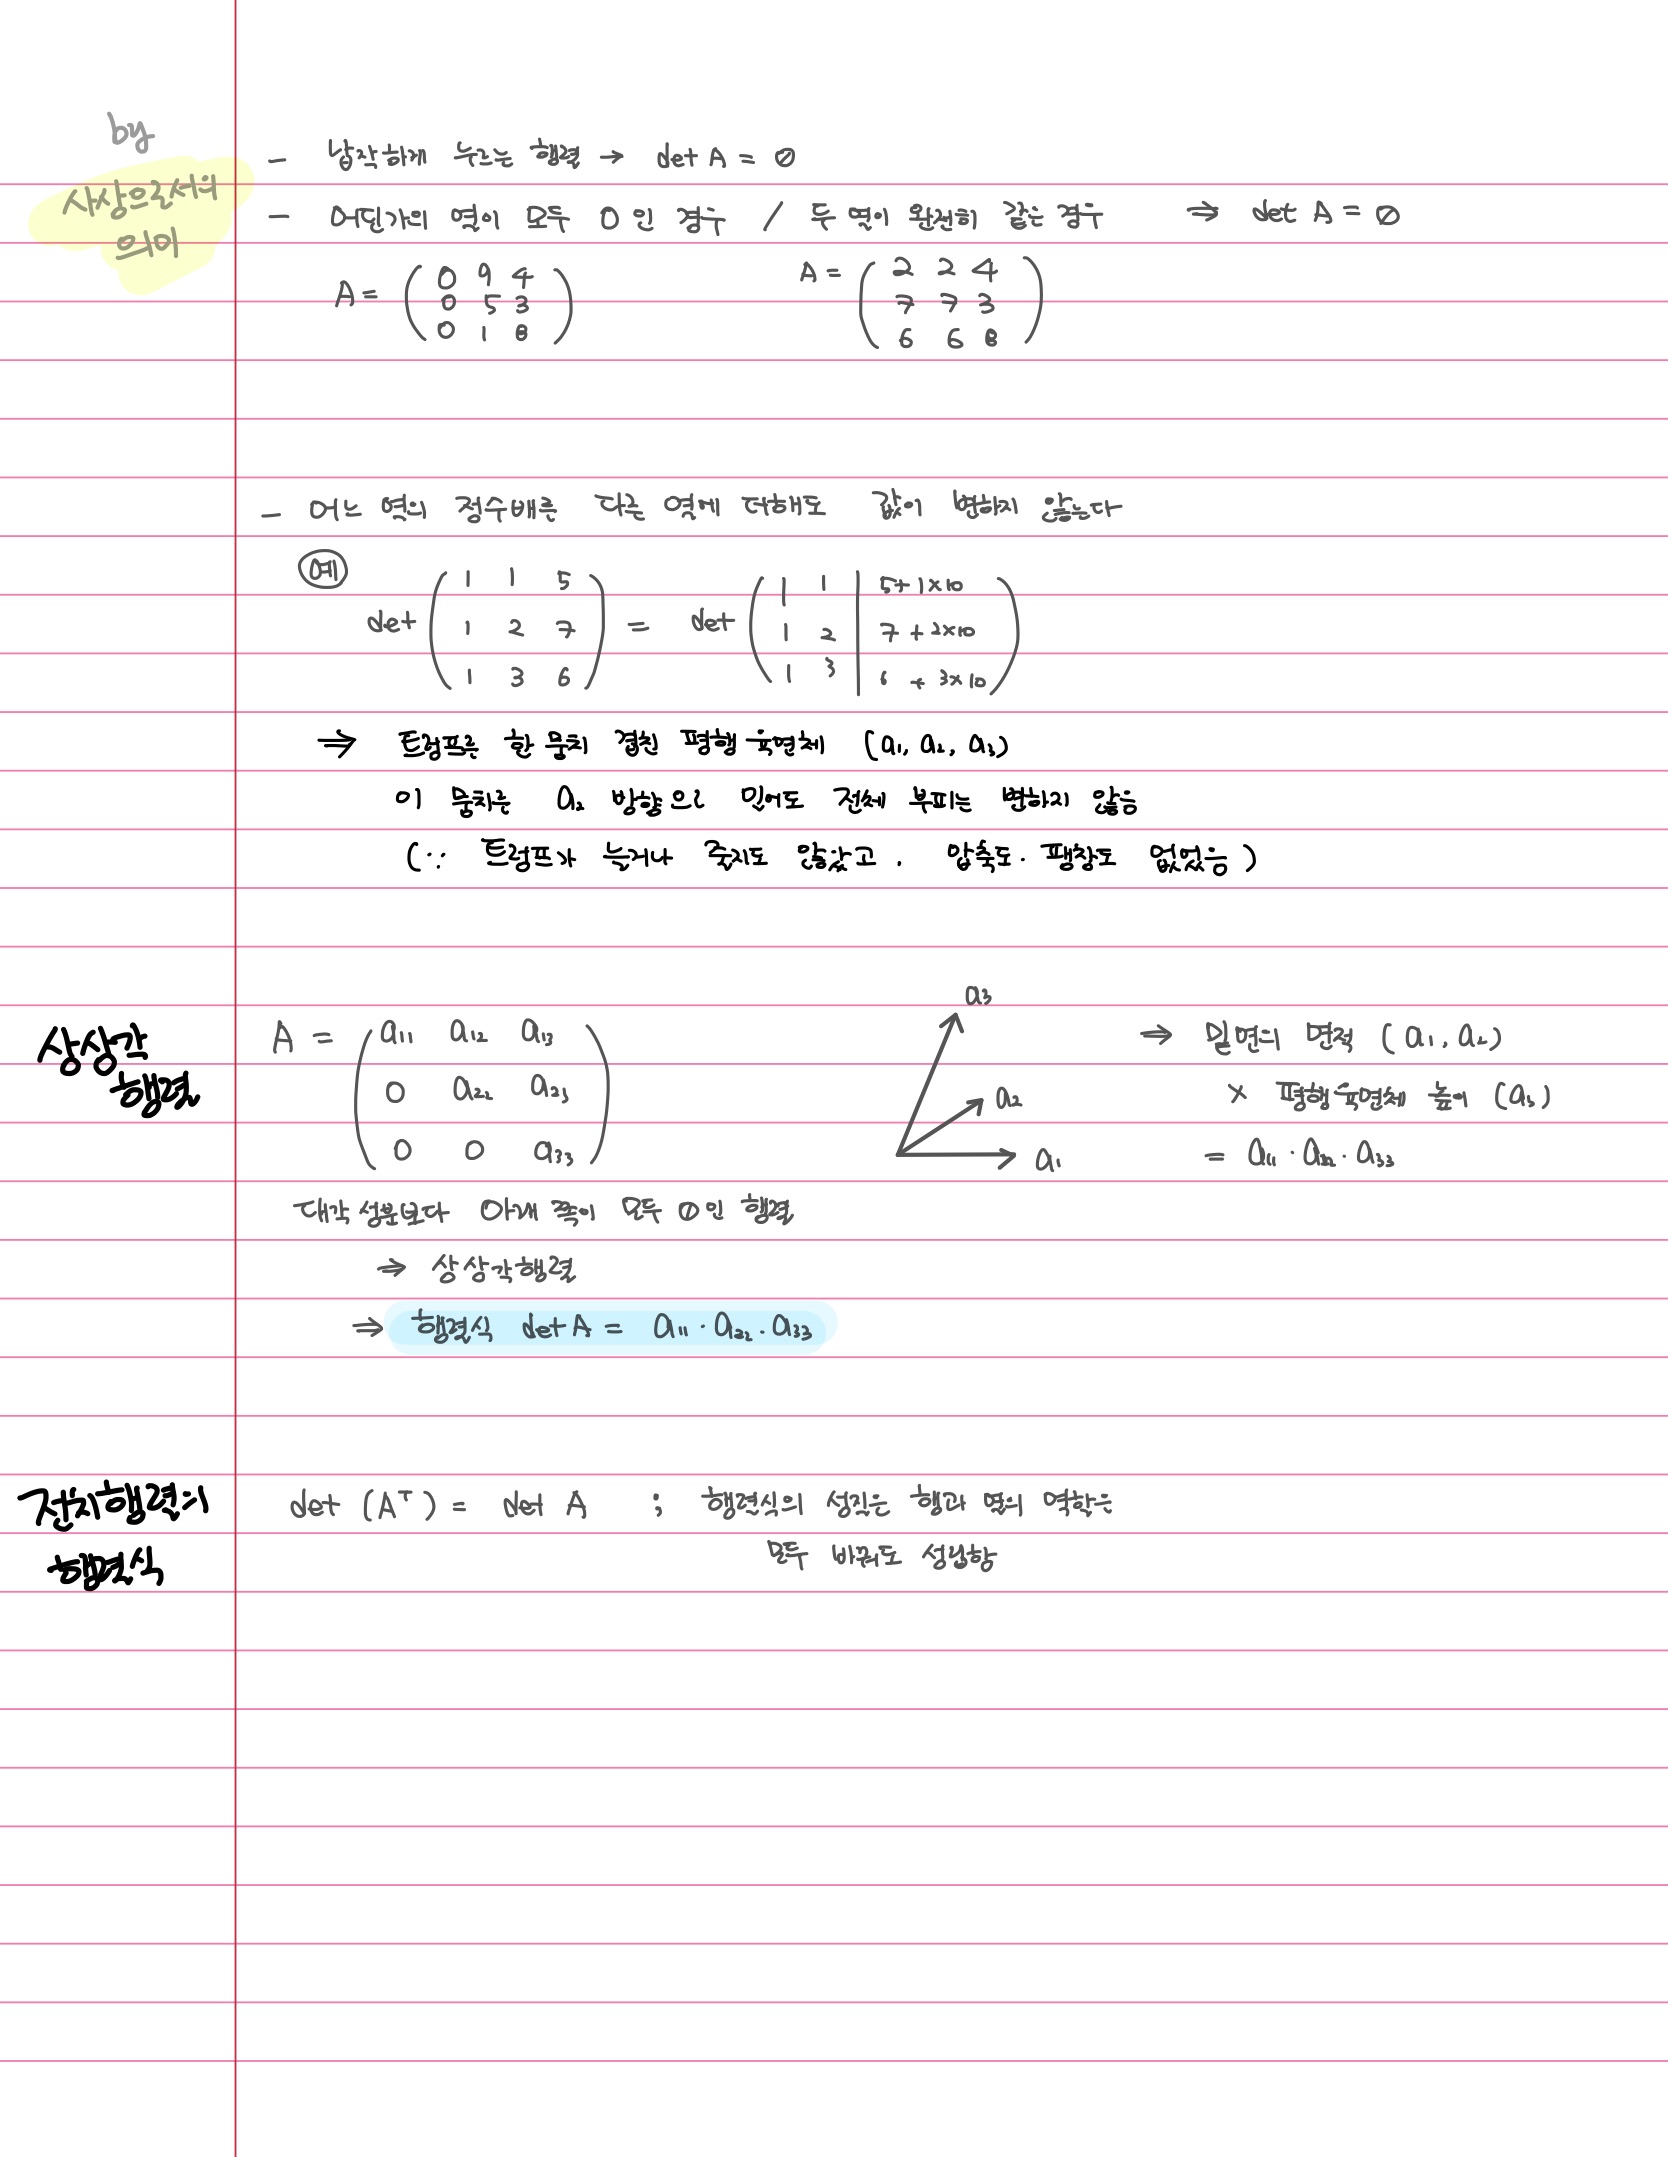 by
사상으로서의
의미
- 납작하게 누르는 행렬 → det A = 0
- 어딘가의 열이 모두 0인 경우 / 두 열이 완전히 같은 경우 ⇒ det A = 0
A = ( 0 9 4
0 5 3
0 1 8 )
A = ( 2 2 4
7 7 3
6 6 8 )
- 어느 열의 정수배를 다른 열에 더해도 값이 변하지 않는다
예
det ( 1 1 5
1 2 7
1 3 6 )
= det ( 1 1 | 5+1×10
1 2 | 7+2×10
1 3 | 6+3×10 )
⇒ 트럼프를 한 뭉치 겹친 평행 육면체 (a₁, a₂, a₃)
이 뭉치를 a₂ 방향으로 밀어도 전체 부피는 변하지 않음
(∵ 트럼프가 늘거나 줄지도 않았고, 압축도·팽창도 없었음)
상삼각
행렬
A = ( a₁₁ a₁₂ a₁₃
0 a₂₂ a₂₃
0 0 a₃₃ )
a₃
a₂
a₁
⇒ 밑면의 면적 (a₁, a₂)
× 평행육면체 높이 (a₃)
= a₁₁ · a₂₂ · a₃₃
대각 성분보다 아래 쪽이 모두 0인 행렬
⇒ 상삼각행렬
⇒ 행렬식 det A = a₁₁ · a₂₂ · a₃₃
전치행렬의
행렬식
det (Aᵀ) = det A ; 행렬식의 성질은 행과 열의 역할을
모두 바꿔도 성립함